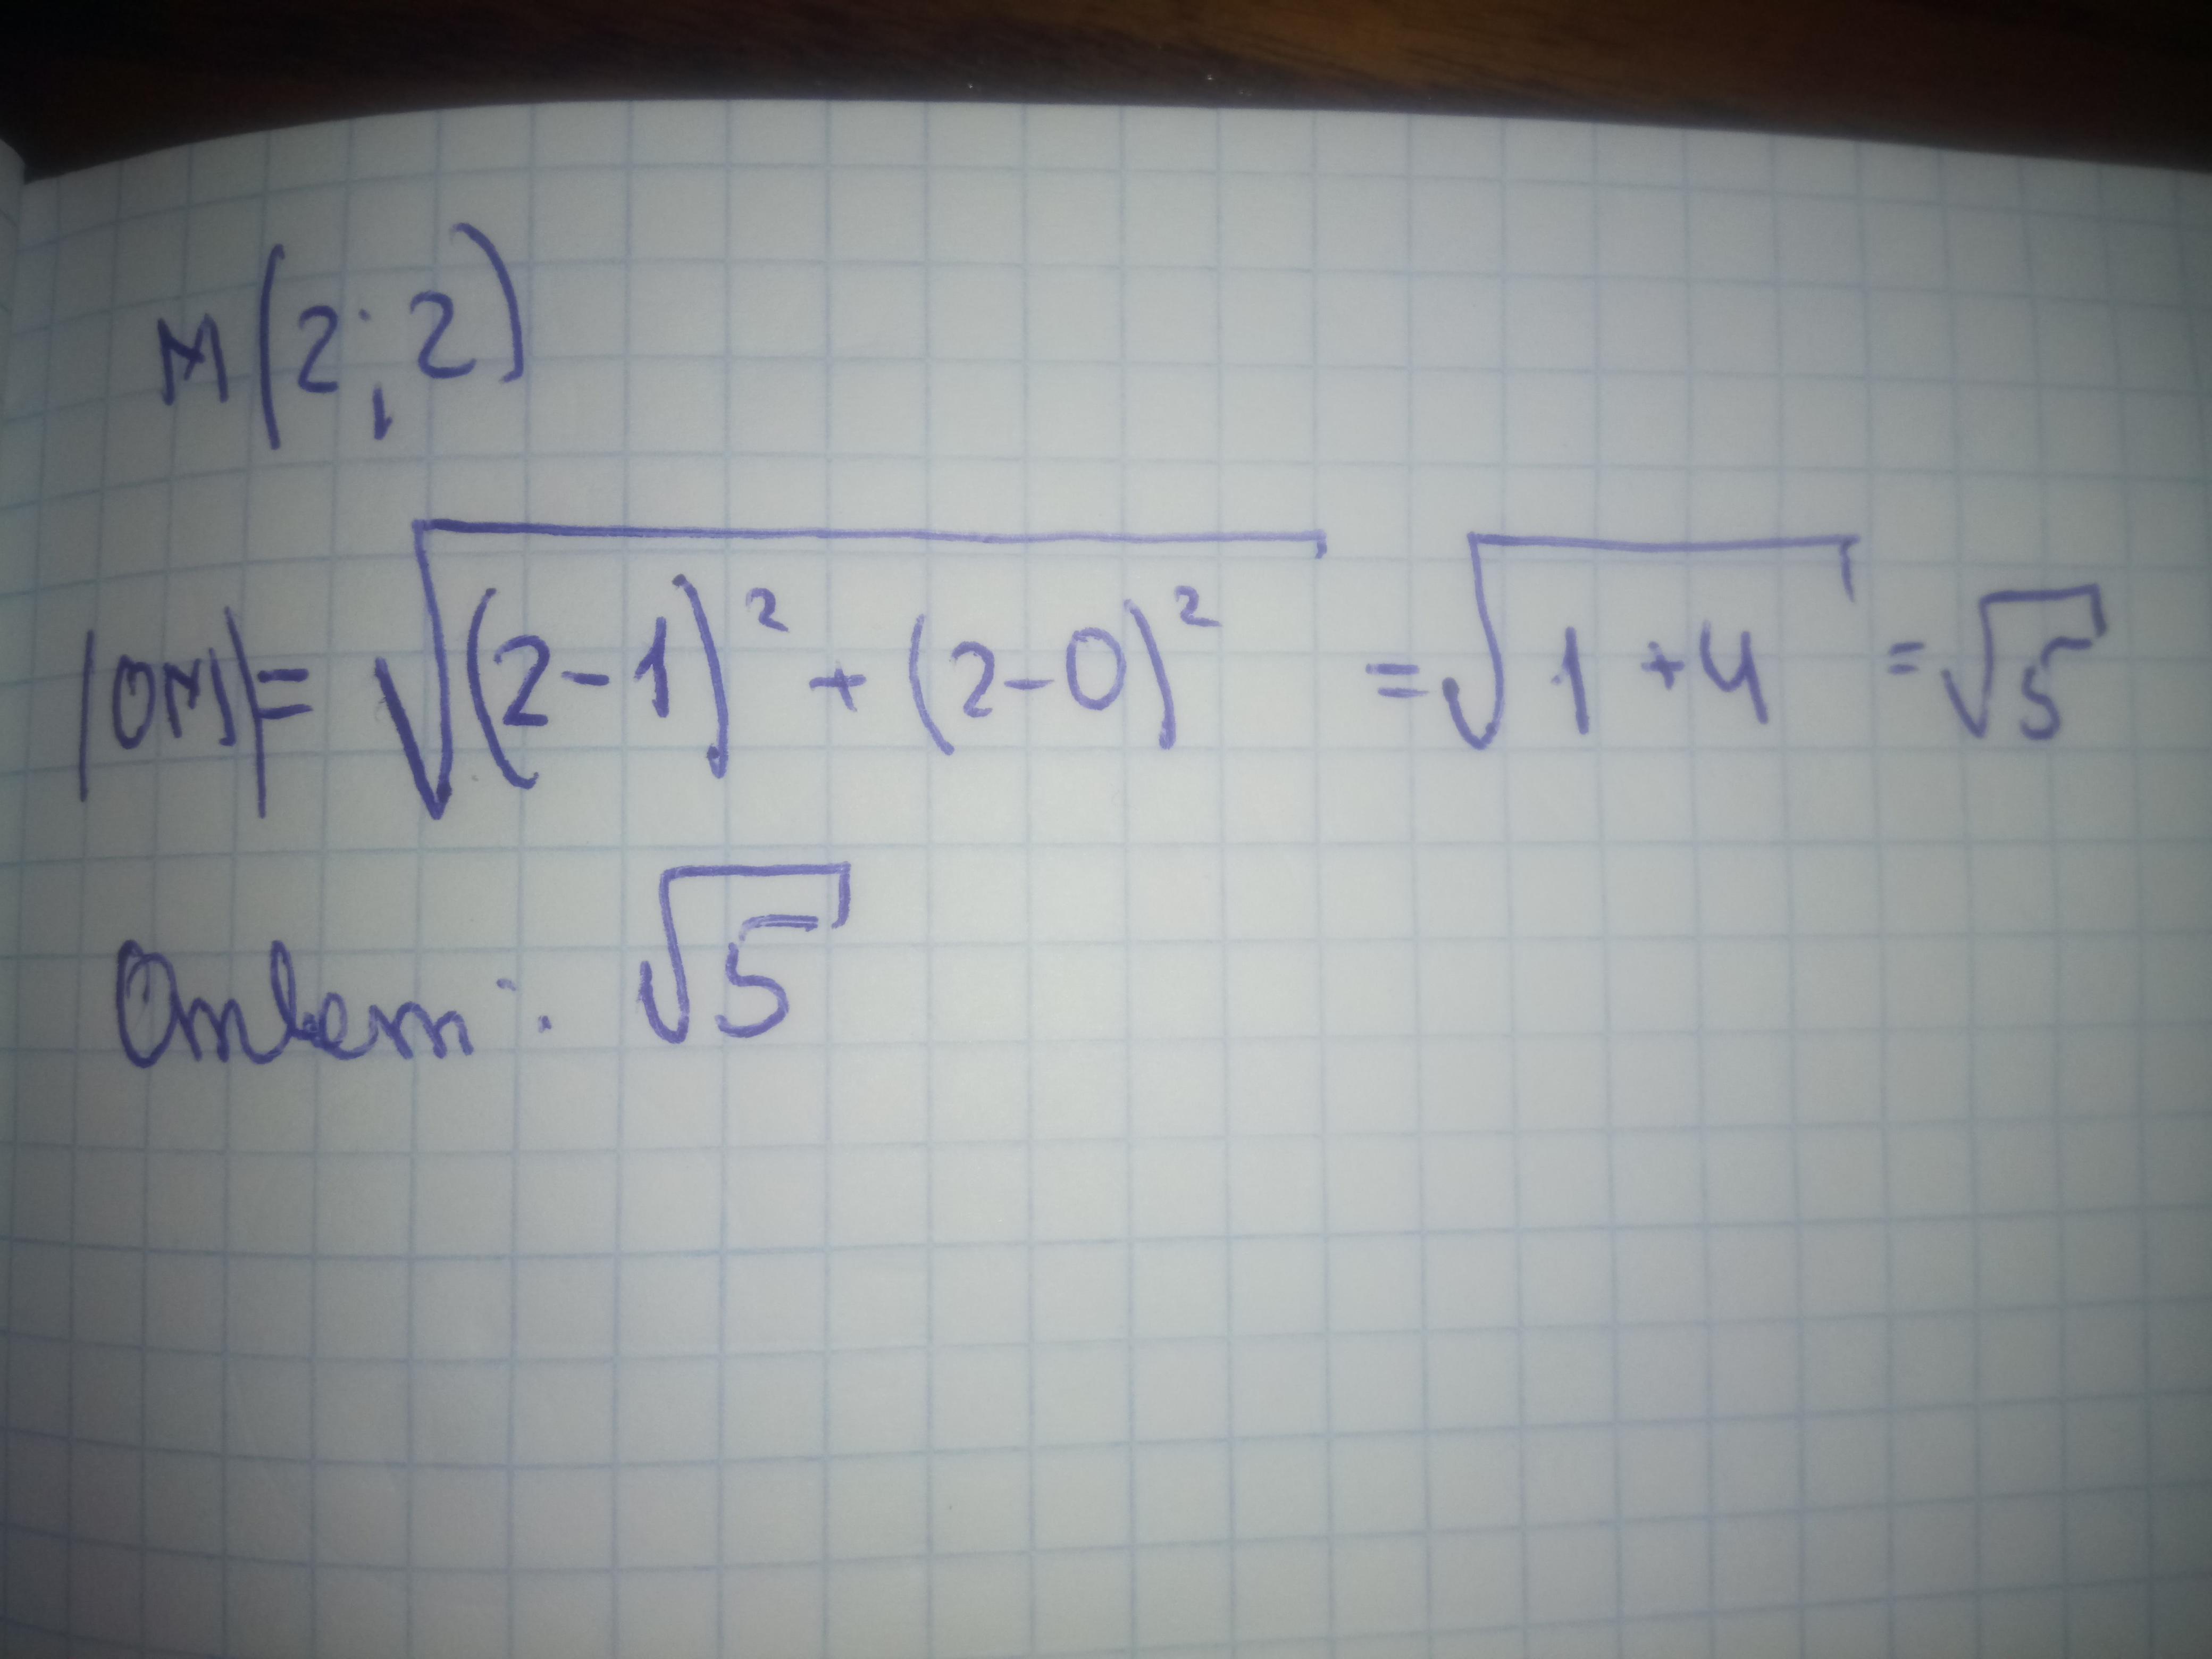 M(2;2)
|OM|= √(2-1)² + (2-0)² = √1+4 = √5
Ответ: √5